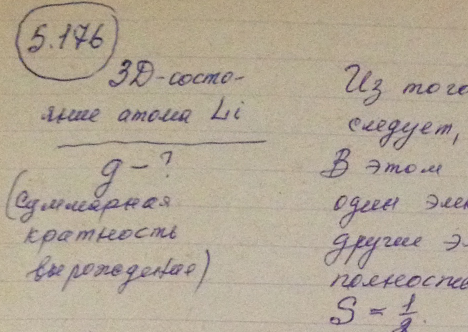 5.176
3D-состо-
яние атома Li
g - ?
(суммарная
кратность
вырождения)
Из того
следует,
В этом
один эле
другие э
полность
S = 1/2.